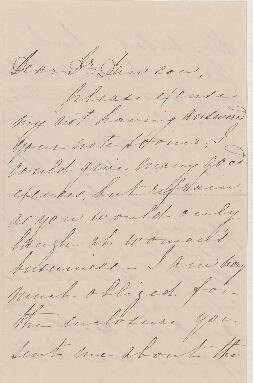 Dear Dr. Dawson,
Please excuse
my not having answered
your note sooner, I
could give many good
excuses, but refrain
as you would only
laugh at woman's
business - I am very
much obliged for
the enclosure you
sent me about the